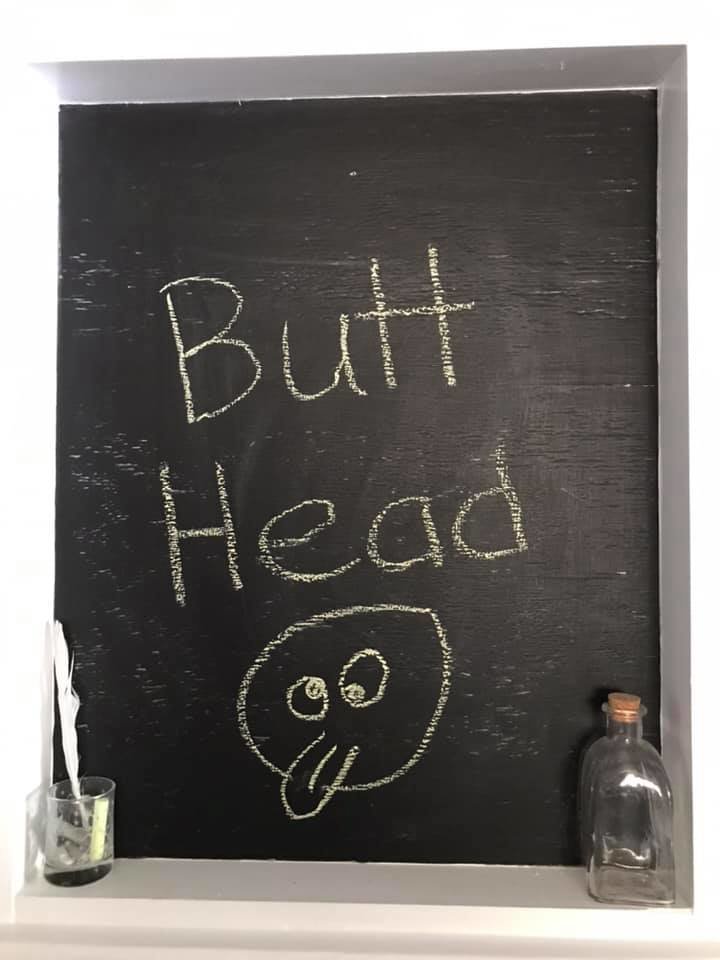 Butt
Head